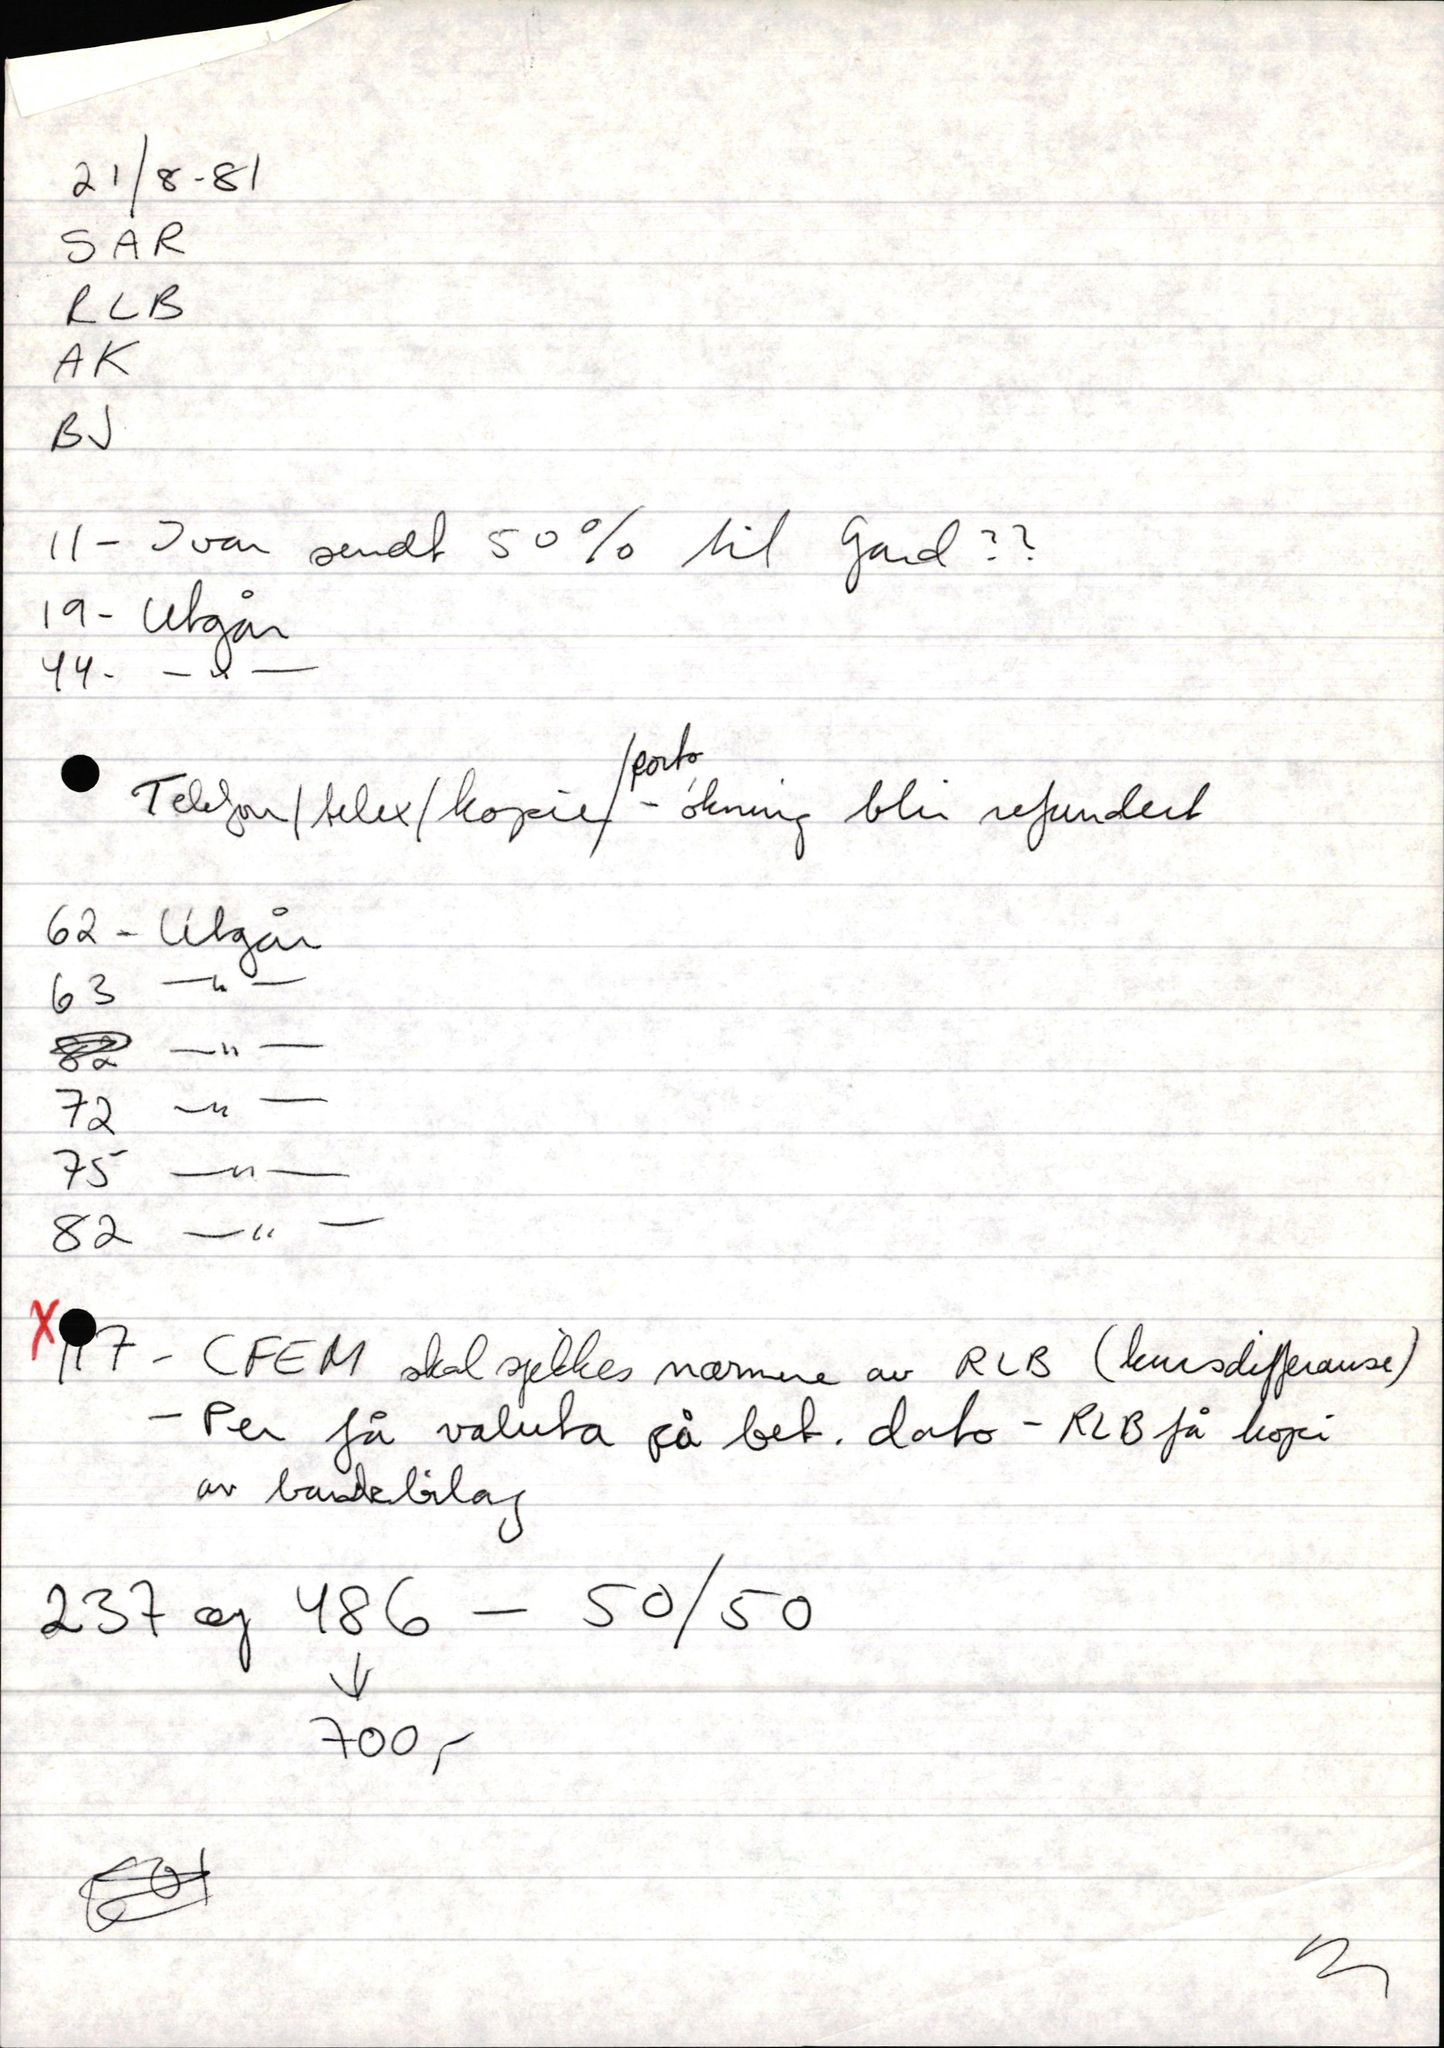 21/8-81
SAR
RLB
AK
BJ
11 - Ivar sendt 50% til Gard??
19 - Utgår
44. - " -
Telefon/telex/kopier/porto - økning blir refundert
62 - Utgår
63 - " -
82 - " -
72 - " -
75 - " -
82 - " -
X 117 - CFEM skal sjekkes nærmere av RLB (kursdifferanse)
- Per få valuta på bet. dato - RLB få kopi
av bankbilag
237 og 486 - 50/50
↓
700,-